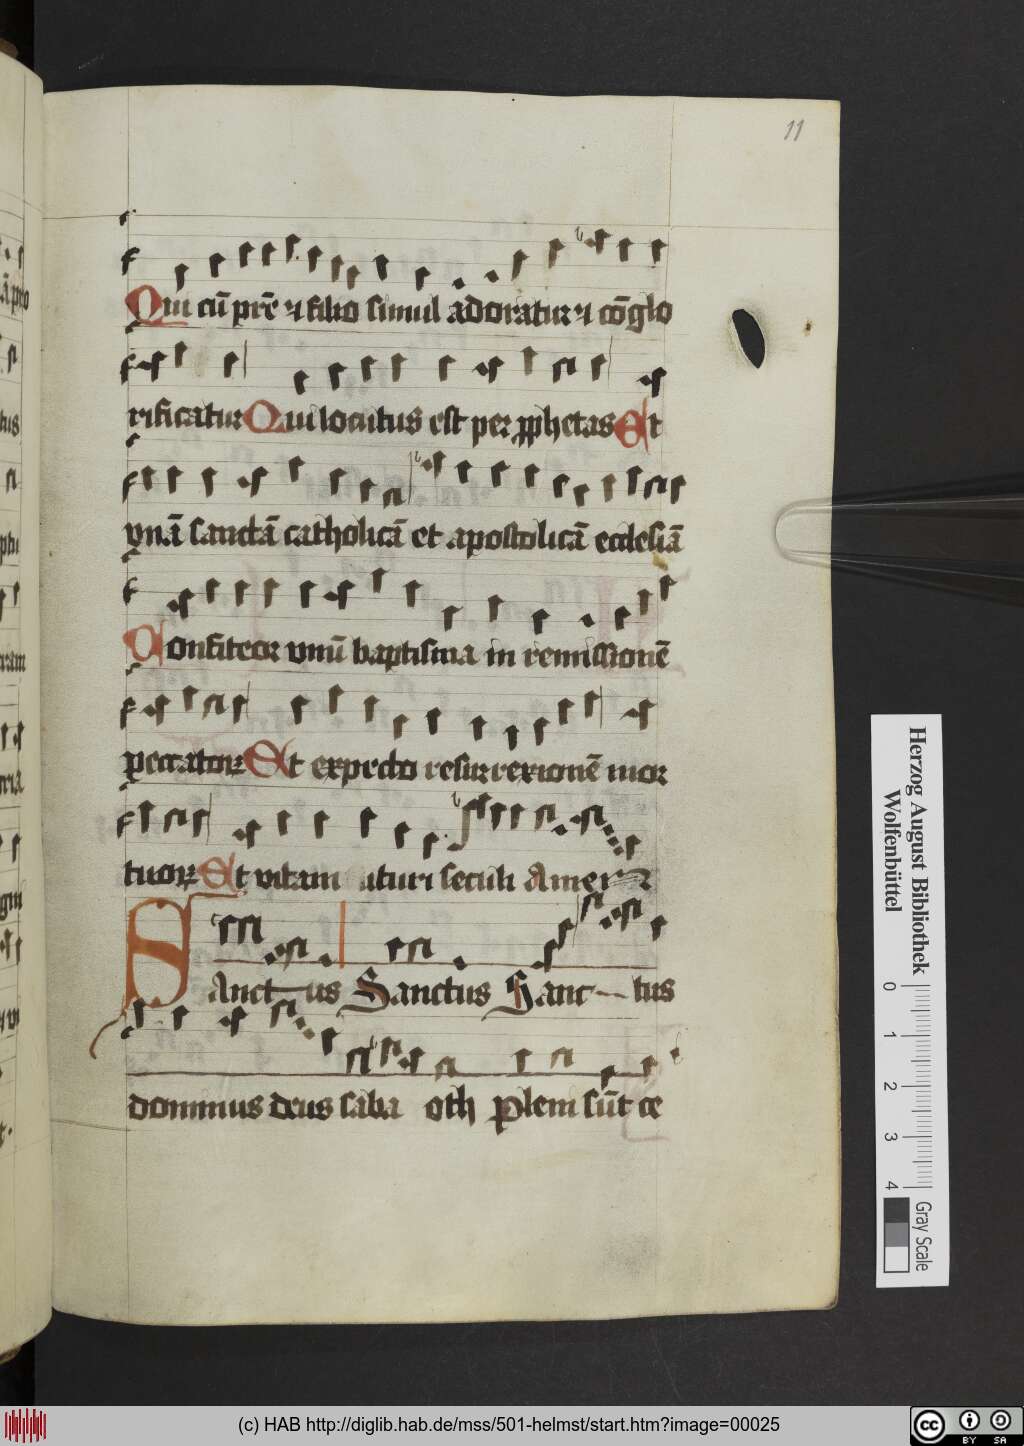 11
Qui cū prē ⁊ filio simul adoratur ⁊ cōglo
rificatur Qui locutus est per ꝓphetas Et
vnā sanctā catholicā et apostolicā ecclesiā
Confiteor vnū baptisma in remissionē
peccatoꝝ Et expecto resurrexionē mor
tuoꝝ Et vitam uturi seculi Amen
Sanctus Sanctus Sanc tus
dominus deus saba oth Pleni sūt ce
Herzog August Bibliothek
Wolfenbüttel
0 1 2 3 4
Gray Scale
(c) HAB http://diglib.hab.de/mss/501-helmst/start.htm?image=00025
cc BY SA